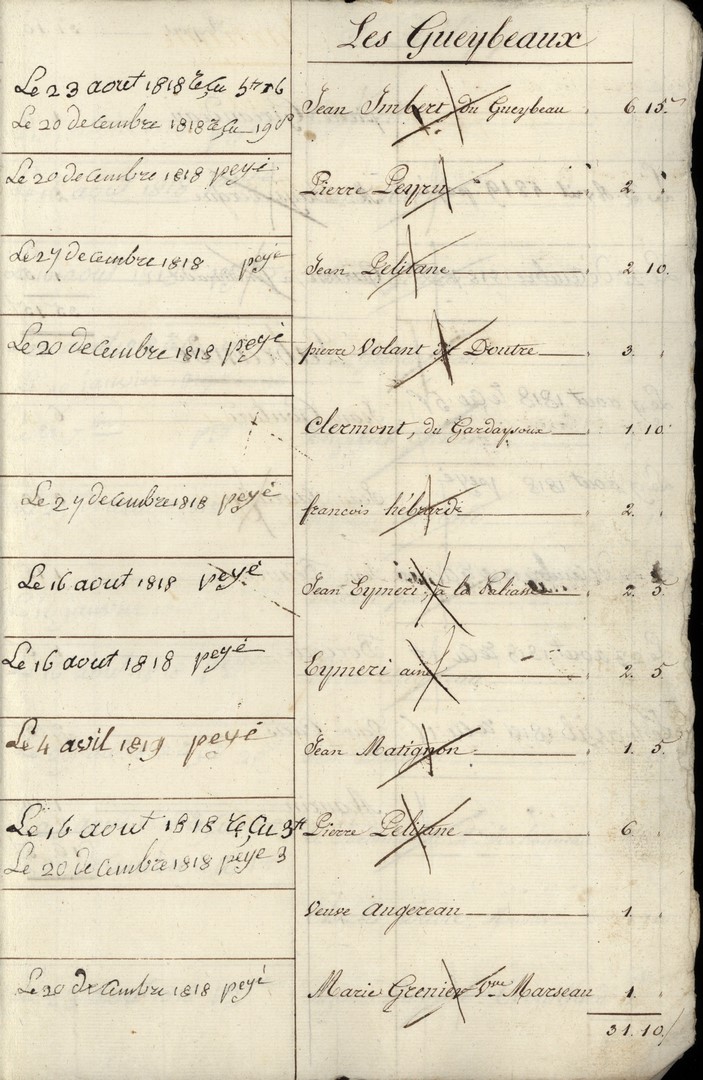 Les Gueybeaux
Le 23 aout 1818 reçu 5
Le 20 decembre 1818 reçu 19
Jean Imbert du Gueybeau 6 15
Le 20 decembre 1818 peyé
Pierre Peyru 2.
Le 27 decembre 1818 peyé
Jean Pelitane 2 10.
Le 20 decembre 1818 peyé
pierre Volant Doutre 3.
Clermont, du Gardaysoux 1. 10.
Le 27 decembre 1818 peyé
francois hébrarde 2.
Le 16 aout 1818 peyé
Jean Eymeri, à la 2. 5.
Le 16 aout 1818 peyé
Eymeri ainé 2. 5.
Le 4 avril 1819 peyé
Jean Matignon 1. 5.
Le 16 aout 1818 reçu 3
Le 20 decembre 1818 peyé 3
Pierre Pelitane 6
Veuve Angereau 1.
Le 20 decembre 1818 peyé
Marie Grenier Vve Marseau 1.
31. 10